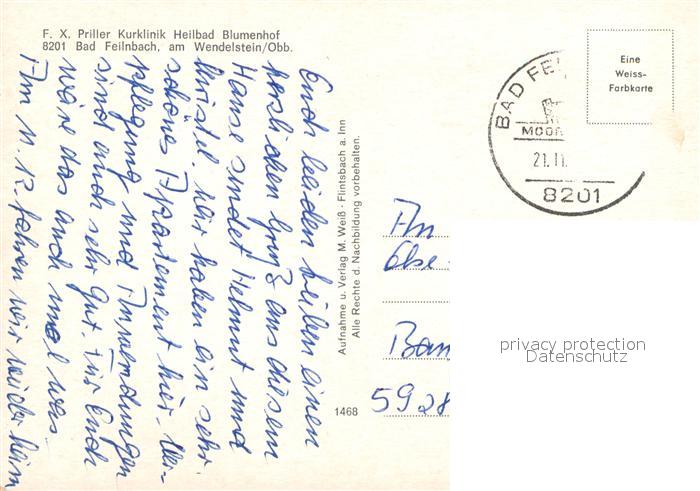 F. X. Priller Kurklinik Heilbad Blumenhof
8201 Bad Feilnbach, am Wendelstein/Obb.
Euch beiden lieben einen
herzlichen Gruß aus diesem
Hause sendet Helmut und
Christel. Wir haben ein sehr
schönes Appartement hier. Ver-
pflegung und Anwendungen
sind auch sehr gut. Für Euch
wäre das auch mal was.
Am 11. 12. fahren wir wieder heim
Aufnahme u. Verlag M. Weiß · Flintsbach a. Inn
Alle Rechte d. Nachbildung vorbehalten.
1468
Eine
Weiss-
Farbkarte
BAD FEI
MOOR
21.11.
8201
An
Ehe
Bam
5928
privacy protection
Datenschutz